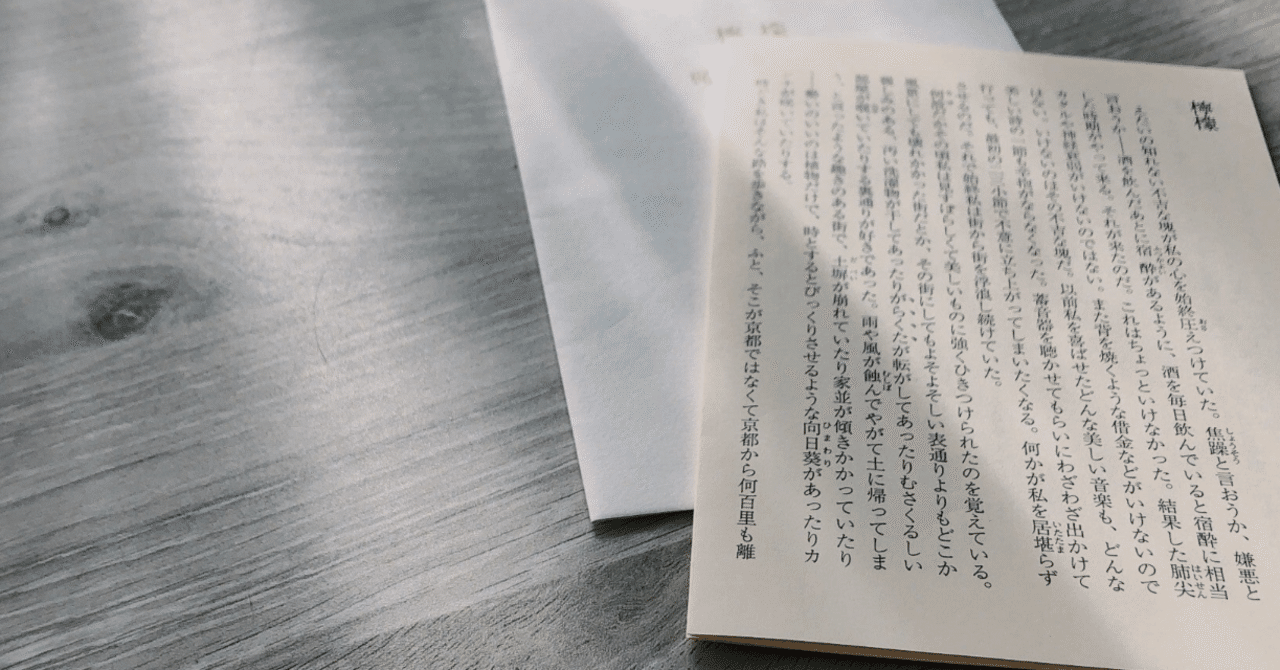 檸檬
えたいの知れない不吉な塊が私の心を始終圧えつけていた。焦躁と言おうか、嫌悪と
言おうか――酒を飲んだあとに宿酔があるように、酒を毎日飲んでいると宿酔に相当
した時期がやって来る。それが来たのだ。これはちょっといけなかった。結果した肺尖
カタルや神経衰弱がいけないのではない。また背を焼くような借金などがいけないので
はない。いけないのはその不吉な塊だ。以前私を喜ばせたどんな美しい音楽も、どんな
美しい詩の一節も辛抱がならなくなった。蓄音器を聴かせてもらいにわざわざ出かけて
行っても、最初の二三小節で不意に立ち上がってしまいたくなる。何かが私を居堪らず
させるのだ。それで始終私は街から街を浮浪し続けていた。
何故だかその頃私は見すぼらしくて美しいものに強くひきつけられたのを覚えている。
風景にしても壊れかかった街だとか、その街にしてもよそよそしい表通りよりもどこか
親しみのある、汚い洗濯物が干してあったりがらくたが転がしてあったりむさくるしい
部屋が覗いていたりする裏通りが好きであった。雨や風が蝕んでやがて土に帰ってしま
う、と言ったような趣きのある街で、土塀が崩れていたり家並が傾きかかっていたり
――勢いのいいのは植物だけで、時とするとびっくりさせるような向日葵があったりカ
ンナが咲いていたりする。
時どき私はそんな路を歩きながら、ふと、そこが京都ではなくて京都から何百里も離